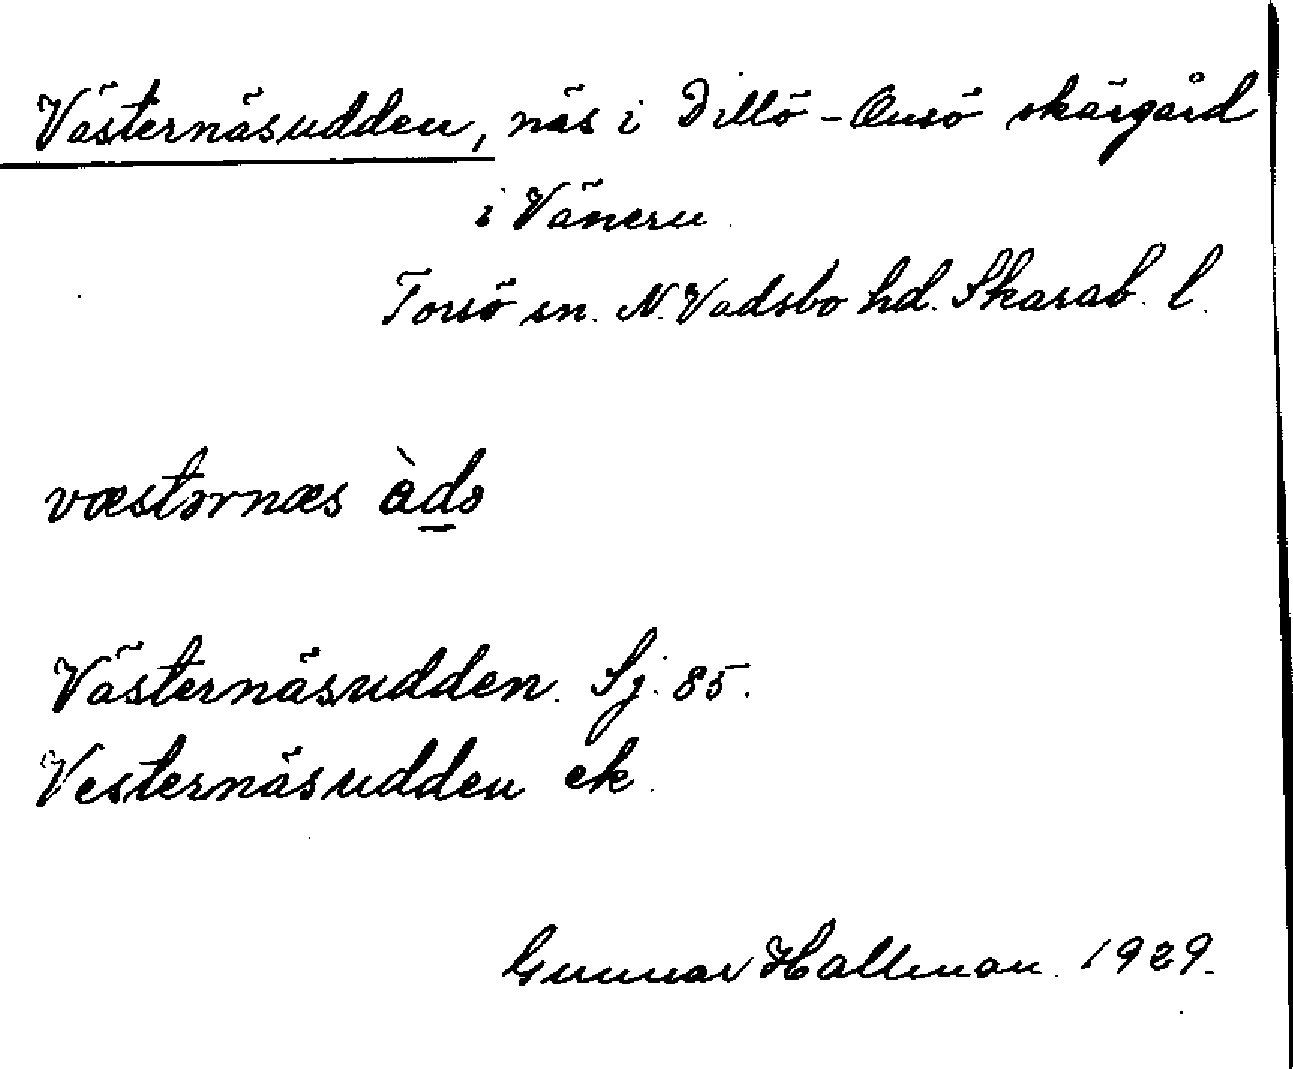 Västernäsudden, näs i Dillö-Onsö skärgård
i Vänern
Torsö sn. N. Vadsbo hd. Skarab. l.
væstərnæs àdə
Västernäsudden. Sj. 85.
Vesternäsudden ek.
Gunnar Hallman. 1929.